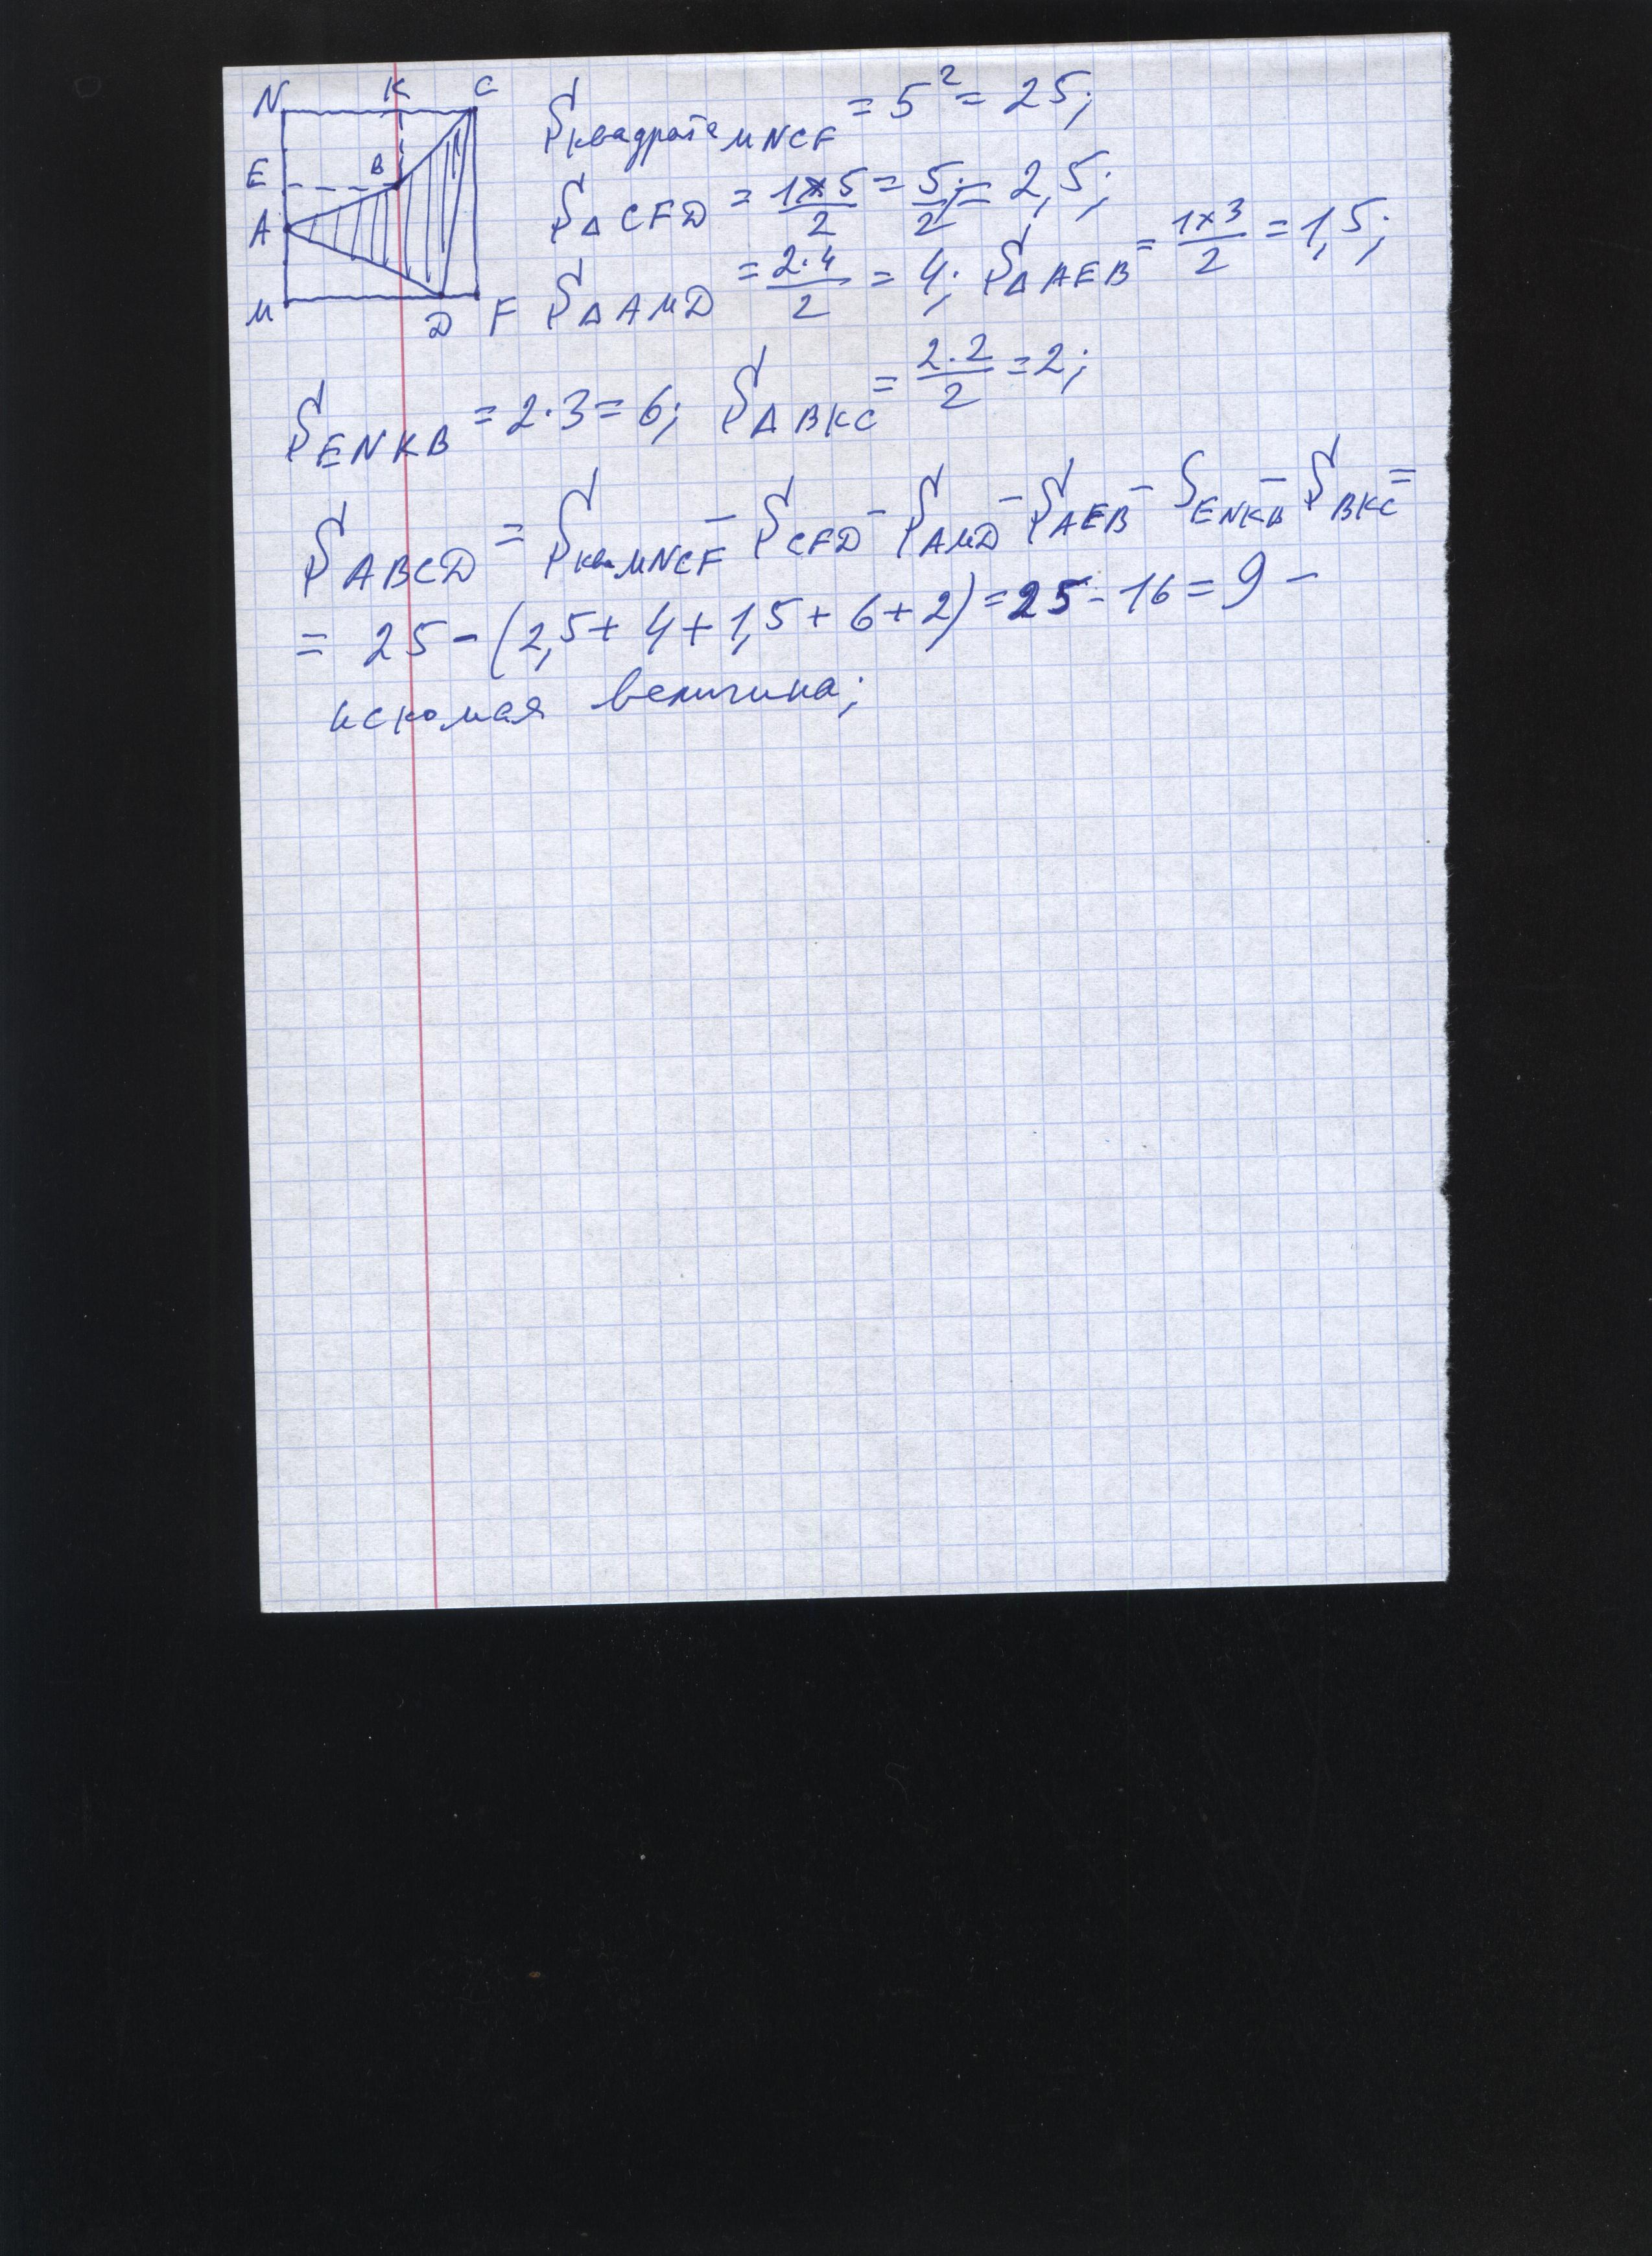 N K C
E B
A
M D F
S квадрата MNCF = 5² = 25;
S Δ CFD = 1×5/2 = 5/2 = 2,5;
S Δ AMD = 2·4/2 = 4; S Δ AEB = 1×3/2 = 1,5;
S ENKB = 2·3 = 6; S Δ BKC = 2·2/2 = 2;
S ABCD = S кв. MNCF − S CFD − S AMD − S AEB − S ENKB − S BKC =
= 25 − (2,5 + 4 + 1,5 + 6 + 2) = 25 − 16 = 9 −
искомая величина;